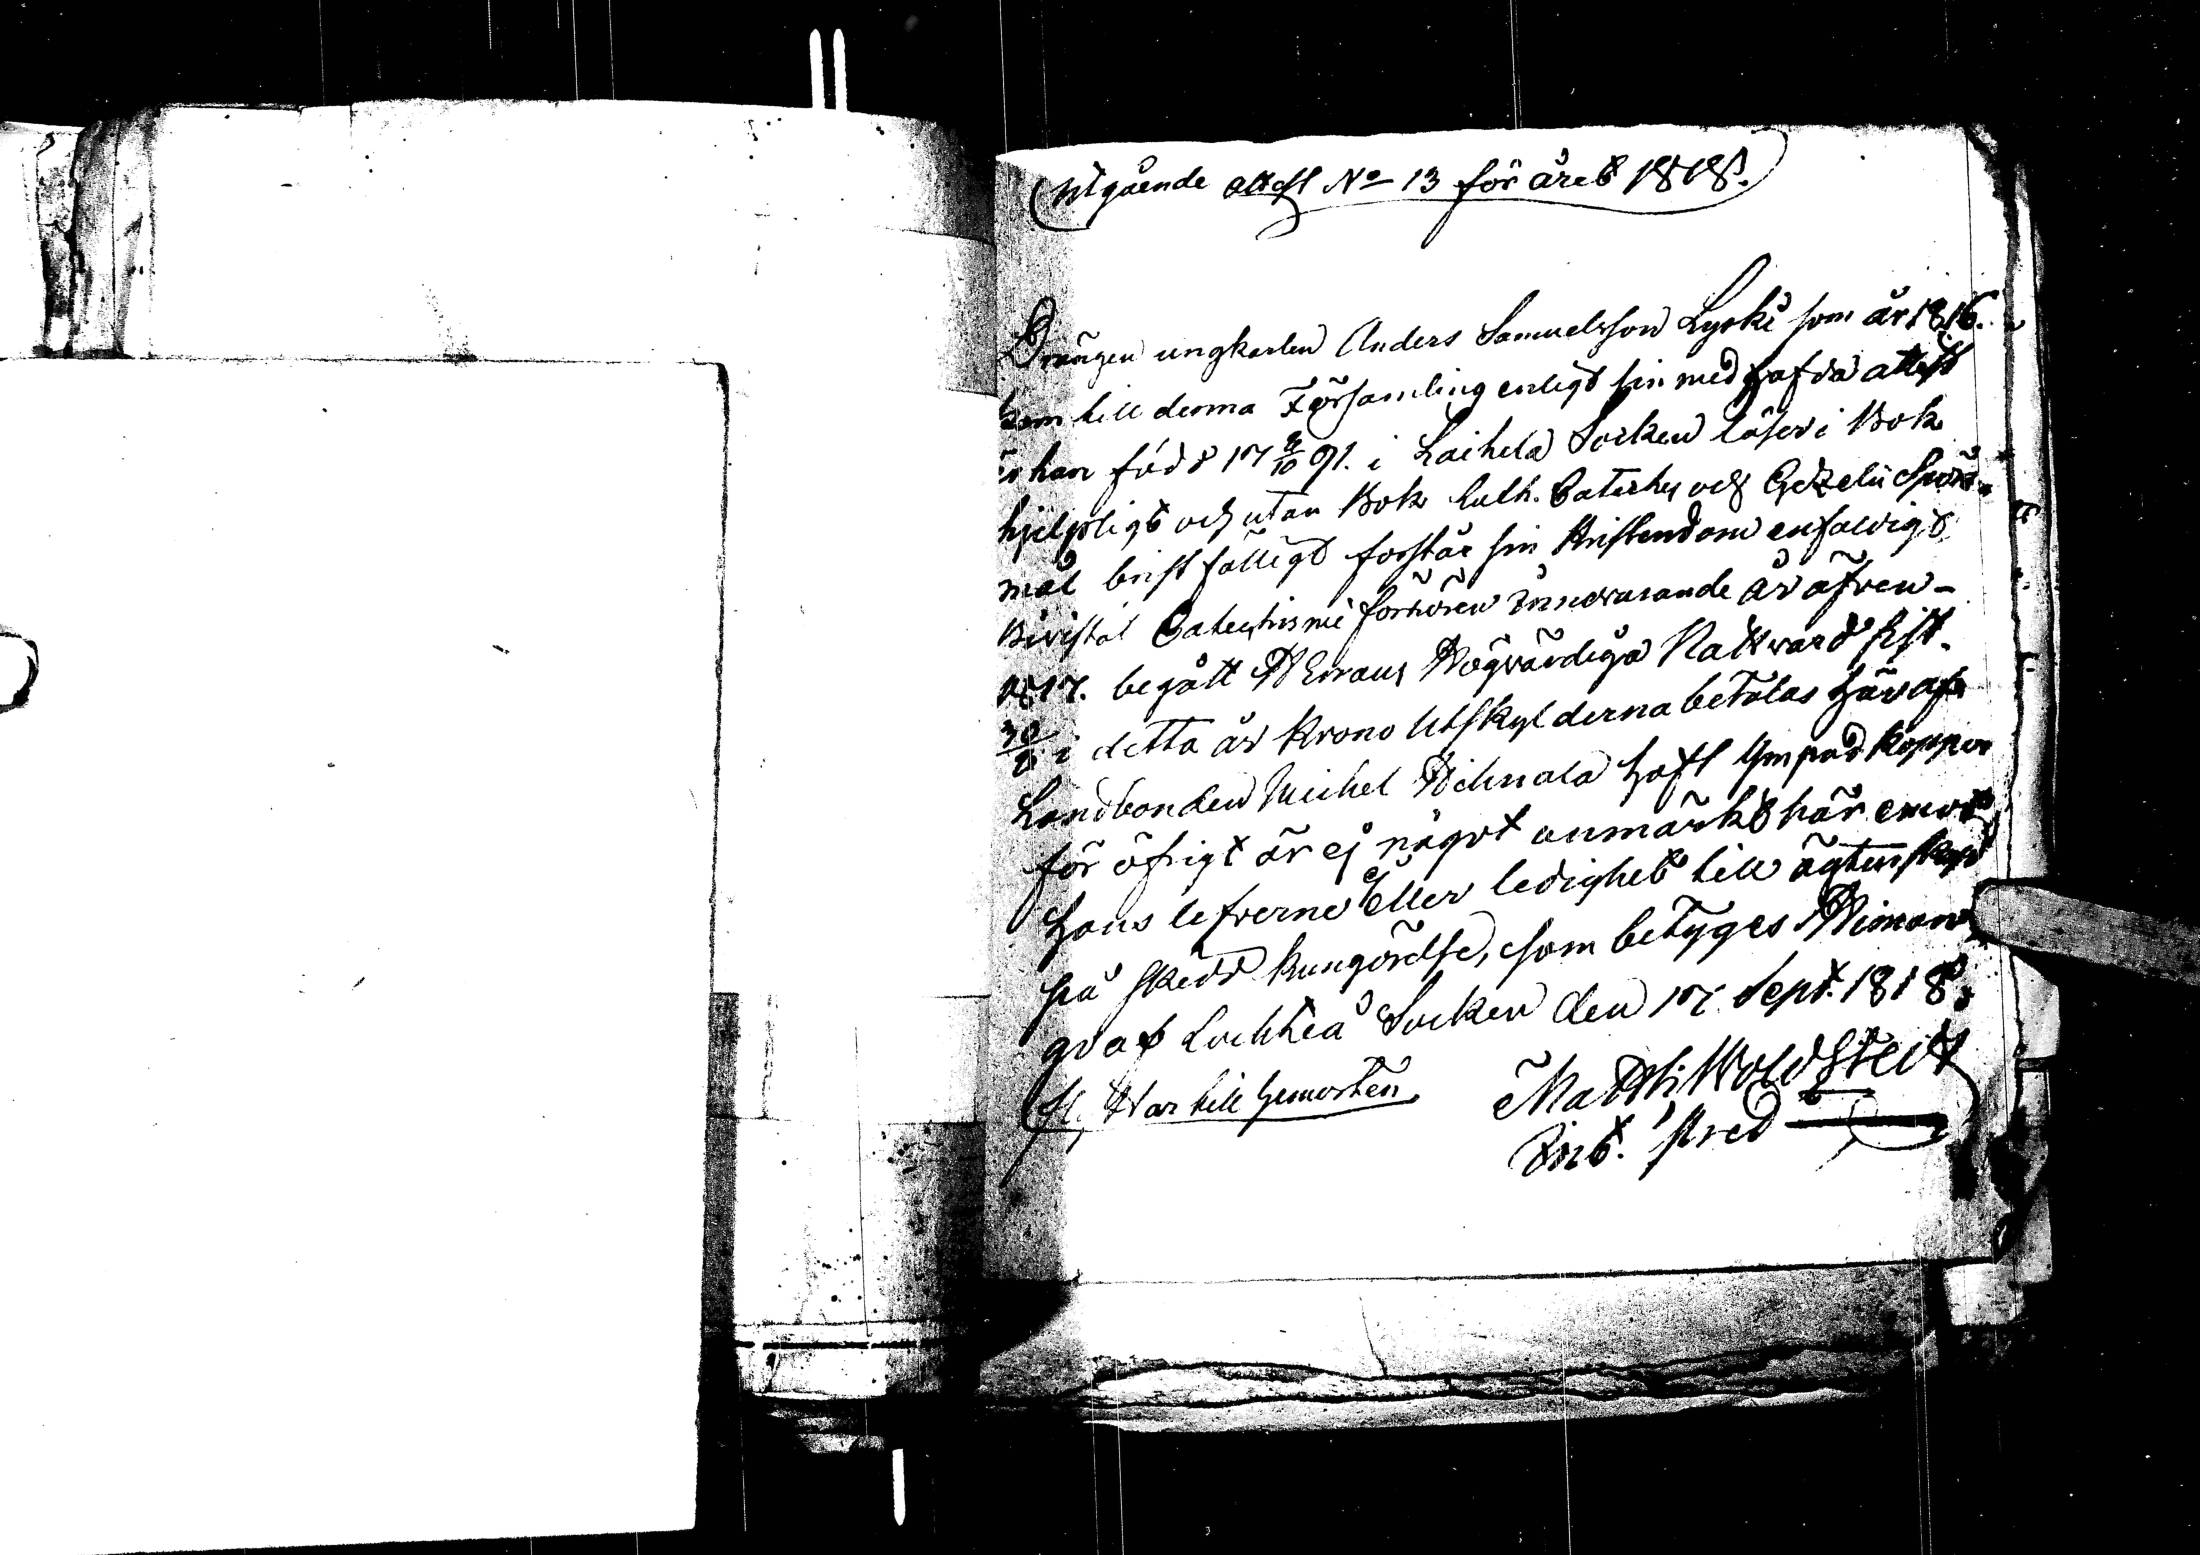 Utgående attest No 13 för året 1818.
Drängen ungkarlen Anders Samuelsson Lyski som år 1816.
kom till denna Församling enligt sin med hafda attest
är han född 17 8/10 91. i Laihela Socken läser i Bok
hjelpligt och utan Bok Luth. Cateches och Gezelii Spörs-
mål bristfälligt forstår sin Kristendom enfaldigt
Bivistat Catechismi förhören innevarande år äfven -
1817. begått HErrans Högvärdiga Nattvard sist.
30/8 i detta år Krono Utskylderna betalas här af
Landbonden Michel haft Ympad koppor
för öfrigt är ej något anmärkt här emot
hans lefverne eller ledighet till ägtenskap
på skedd kungörelse, som betyges Himan
gva Lochteå Socken den 17 Sept. 1818.
Matth: Woldstedt
till
Pred